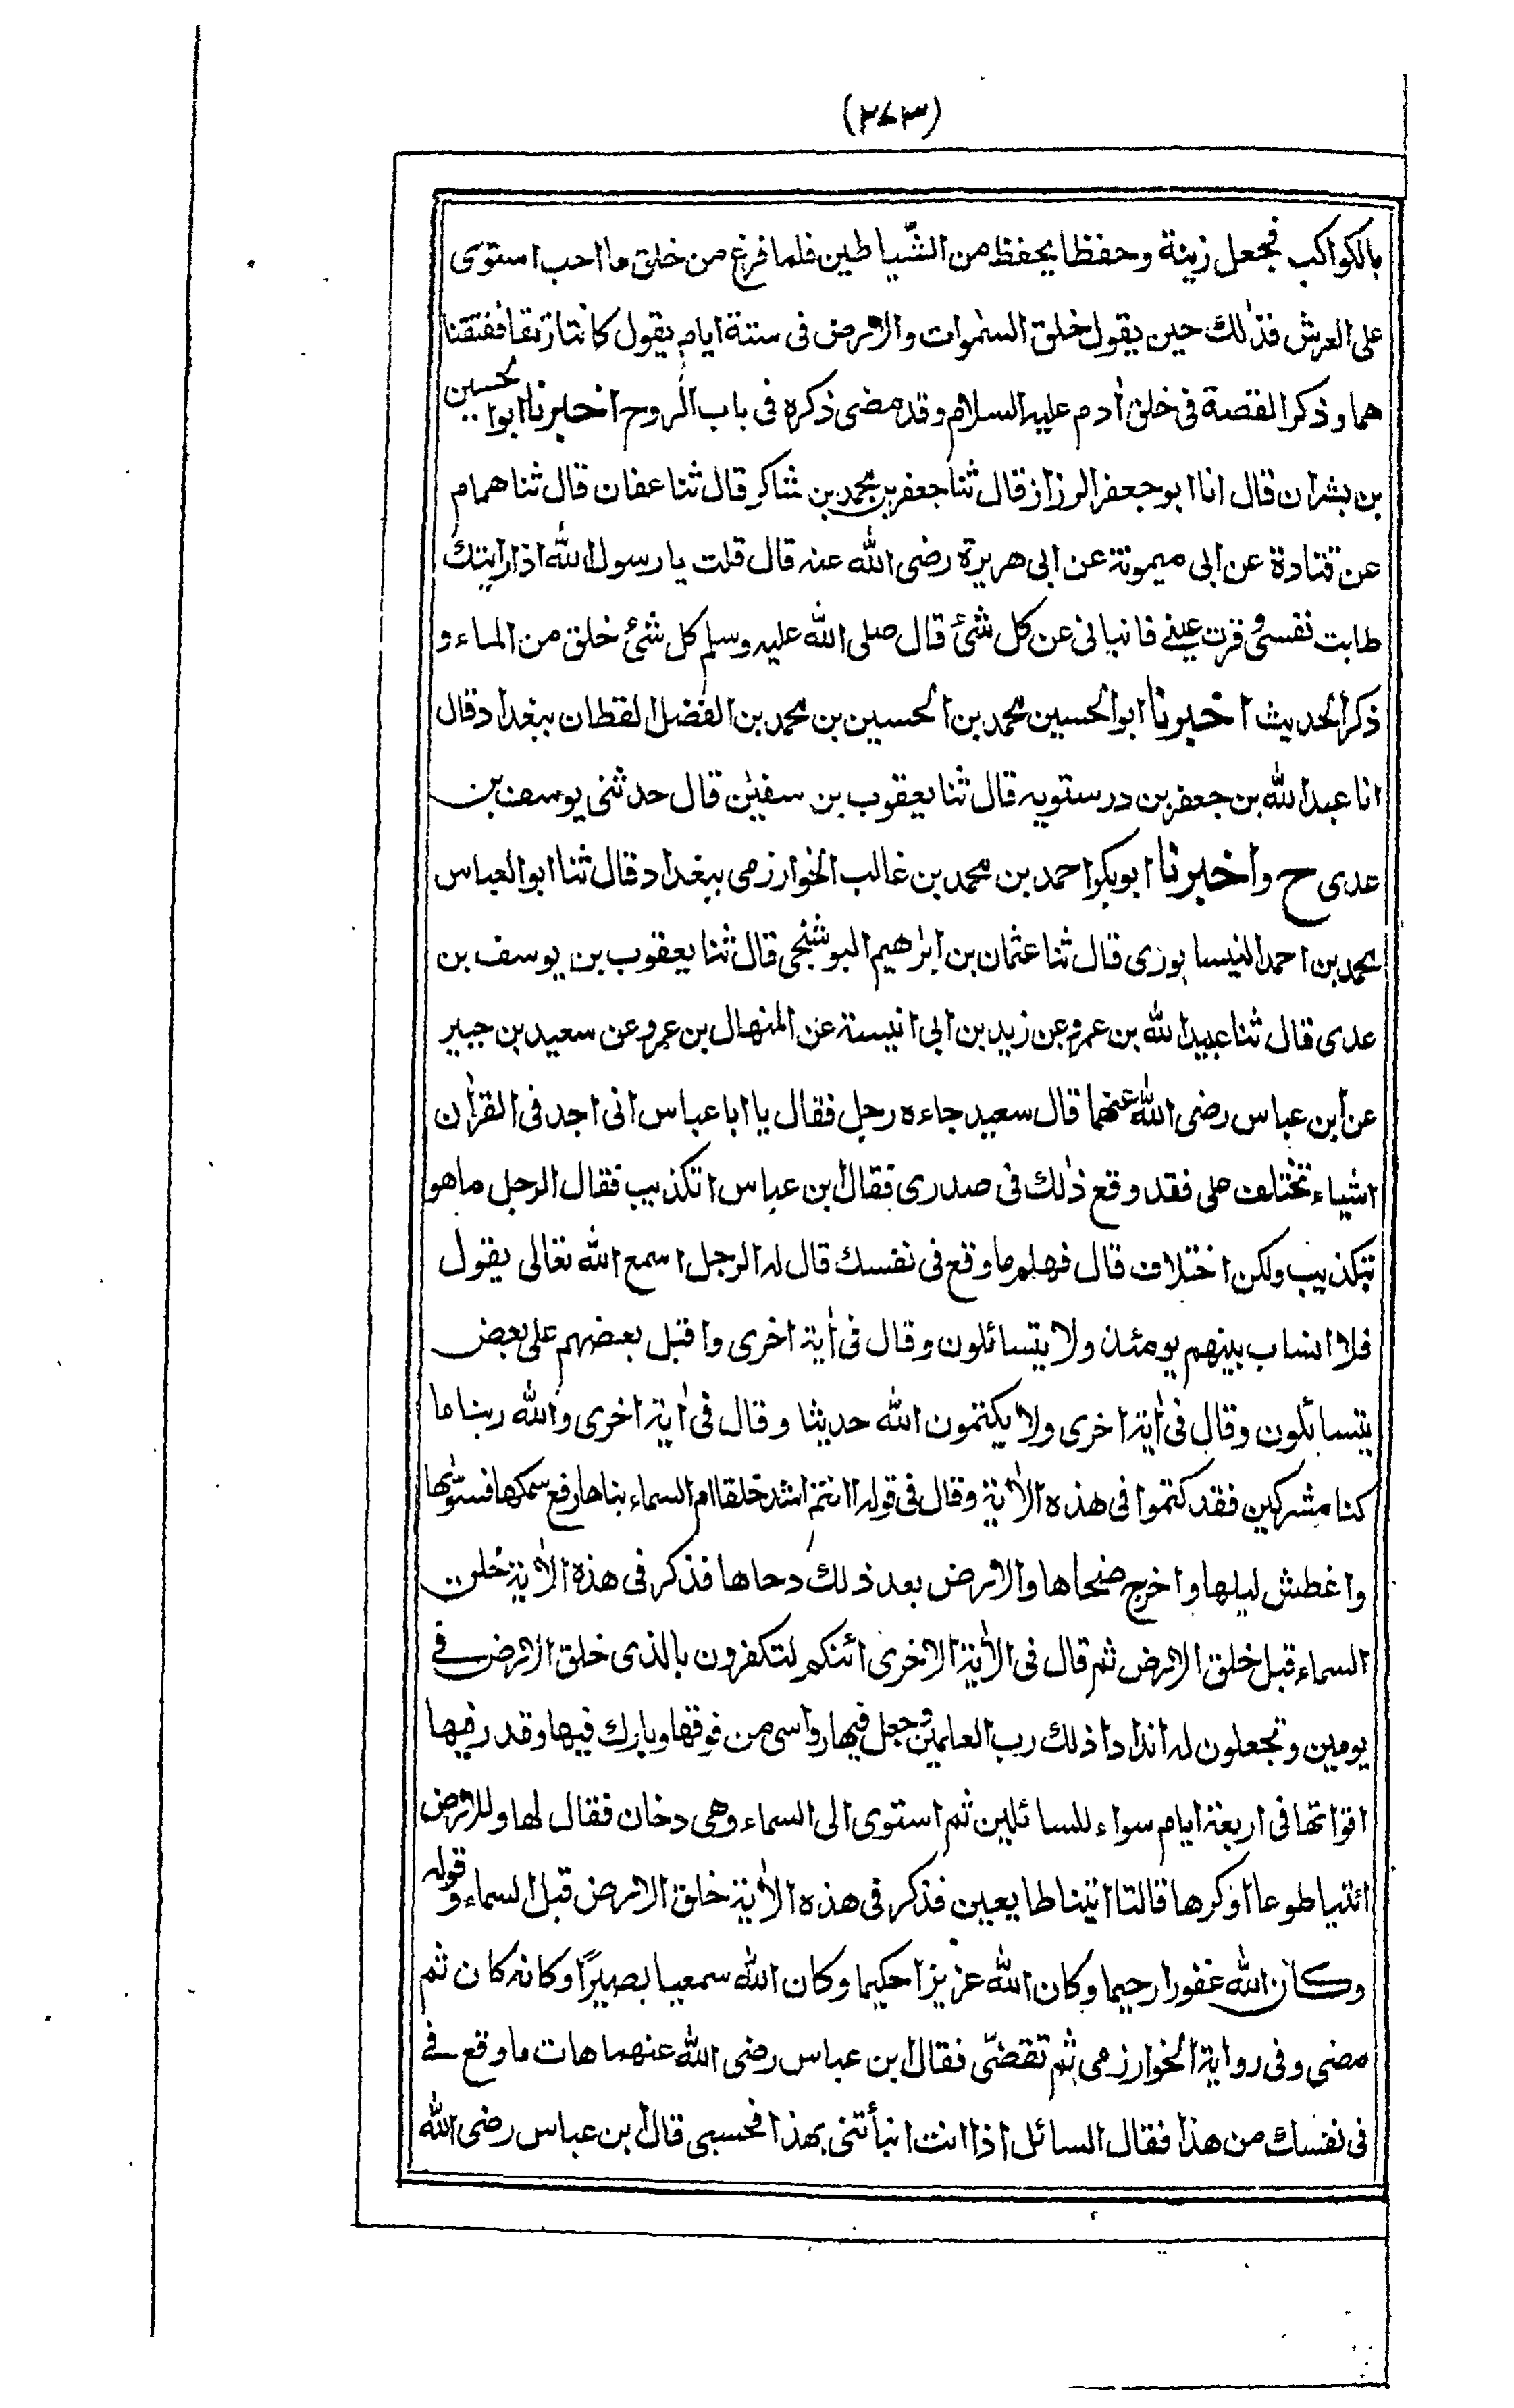 (۲۷۳)
بالكواكب فجعل زينة وحفظا يحفظ من الشّياطين فلما فرغ من خلق ما احب استوى
على العرش فذٰلك حين يقول خلق السمٰوات والارض فى ستة ايام يقول كانتا رتقا ففتقنا
هما وذكر القصة فى خلق اٰدم عليه السلام وقد مضى ذكره فى باب الروح اخبرنا ابوالحسين
بن بشران قال انا ابو جعفر الرزاز قال ثنا جعفر بن محمد بن شاكر قال ثنا عفان قال ثنا همام
عن قتادة عن ابى ميمونة عن ابى هريرة رضى الله عنه قال قلت يا رسول الله اذا رايتك
طابت نفسى وقرت عينے فانبانى عن كل شئ قال صلى الله عليه وسلم كل شئ خلق من الماء و
ذكر الحديث اخبرنا ابوالحسين محمد بن الحسين بن محمد بن الفضل القطان ببغداد قال
انا عبد الله بن جعفر بن درستويه قال ثنا يعقوب بن سفيٰن قال حدثنى يوسف بن
عدى ح واخبرنا ابوبكر احمد بن محمد بن غالب الخوارزمى ببغداد قال ثنا ابو العباس
محمد بن احمد النيسابورى قال ثنا عثمان بن ابرٰهيم البوشنجى قال ثنا يعقوب بن يوسف بن
عدى قال ثنا عبيد الله بن عمرو عن زيد بن ابى انيسة عن المنهال بن عمرو عن سعيد بن جبير
عن ابن عباس رضى الله عنهما قال سعيد جاءه رجل فقال يا ابا عباس انى اجد فى القراٰن
اشياء تختلف على فقد وقع ذٰلك فى صدرى فقال ابن عباس اتكذيب فقال الرجل ما هو
بتكذيب ولكن اختلاف قال فهلم ما وقع فى نفسك قال له الرجل اسمع الله تعالى يقول
فلا انساب بينهم يومئذ ولا يتسائلون وقال فى اٰية اخرى واقبل بعضهم على بعض
يتسائلون وقال فى اٰية اخرى ولا يكتمون الله حديثا وقال فى اٰية اخرى والله ربنا ما
كنا مشركين فقد كتموا فى هذه الاٰية وقال فى قوله اانتم اشد خلقا ام السماء بناها رفع سمكها فسوّٰها
واغطش ليلها واخرج ضحاها والارض بعد ذلك دحاها فذكر فى هذه الاٰية خلق
السماء قبل خلق الارض ثم قال فى الاٰية الاخرى ائنكم لتكفرون بالذى خلق الارض فے
يومين وتجعلون له اندادا ذلك رب العلمين وجعل فيها رواسى من فوقها وبارك فيها وقدر فيها
اقواتها فى اربعة ايام سواء للسائلين ثم استوى الى السماء وهى دخان فقال لها وللارض
ائتيا طوعا او كرها قالتا اتينا طايعين فذكر فى هذه الاٰية خلق الارض قبل السماء وقوله
وكان الله غفورا رحيما وكان الله عزيزا حكيما وكان الله سميعا بصيرًا وكانه كان ثم
مضى وفى رواية الخوارزمى ثم تقضّى فقال ابن عباس رضى الله عنهما هات ما وقع فے
فى نفسك من هذا فقال السائل اذا انت انبأتنى بهذا فحسبى قال ابن عباس رضى الله